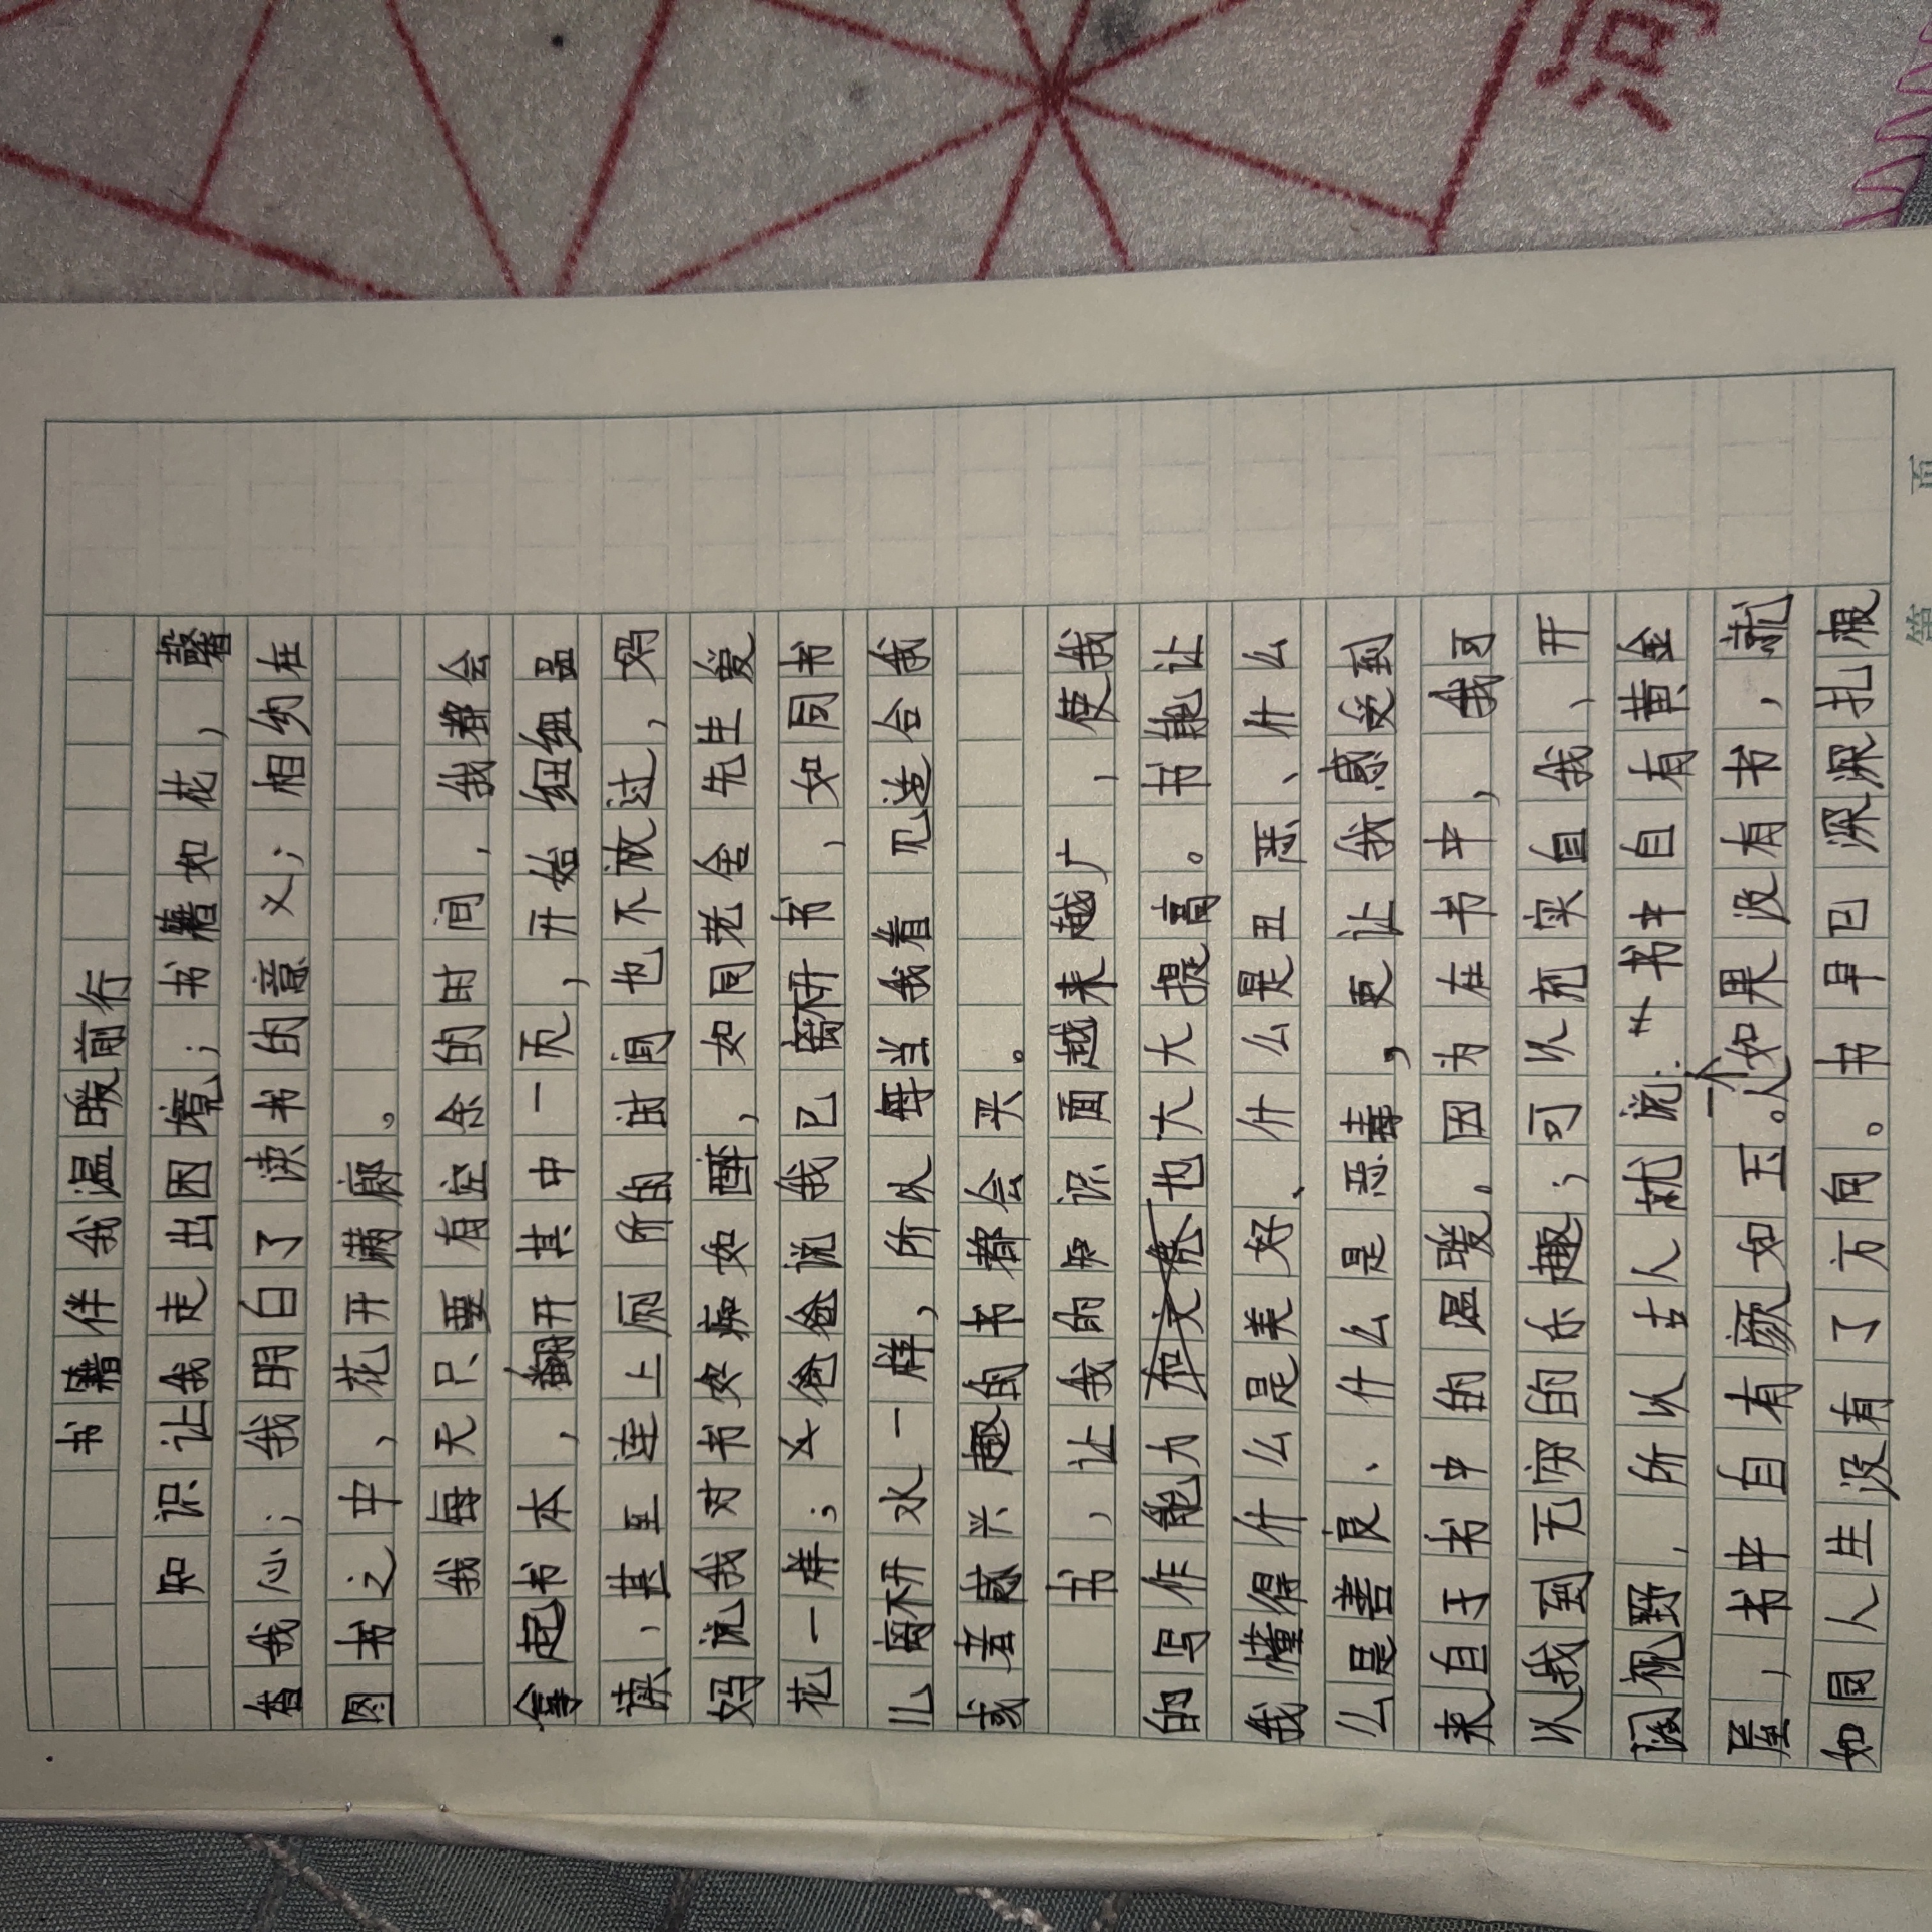 书籍伴我温暖前行
知识让我走出困境；书籍如花，馨
香我心；我明白了读书的意义；相约在
图书之中，花开满廊。
我每天只要有空余的时间，我都会
拿起书本，翻开其中一页，开始细细品
读，甚至连上厕所的时间也不放过，妈
妈说我对书如痴如醉，如同老舍先生爱
花一样；爸爸说我已离不开书，如同书
儿离不开水一样，所以每当我看见适合我
或者感兴趣的书都会买。
书，让我的知识面越来越广，使我
的写作能力也大大提高。书能让
我懂得什么是美好、什么是丑恶、什么
么是善良、什么是恶毒，更让我感受到
来自于书中的温暖。因为在书中，我可
以找到无穷的乐趣；可以充实自我、开
阔视野，所以古人就说：“书中自有黄金
屋，书中自有颜如玉。”人如果没有书，就
如同人生没有了方向。书早已深深扎根
第 页
河